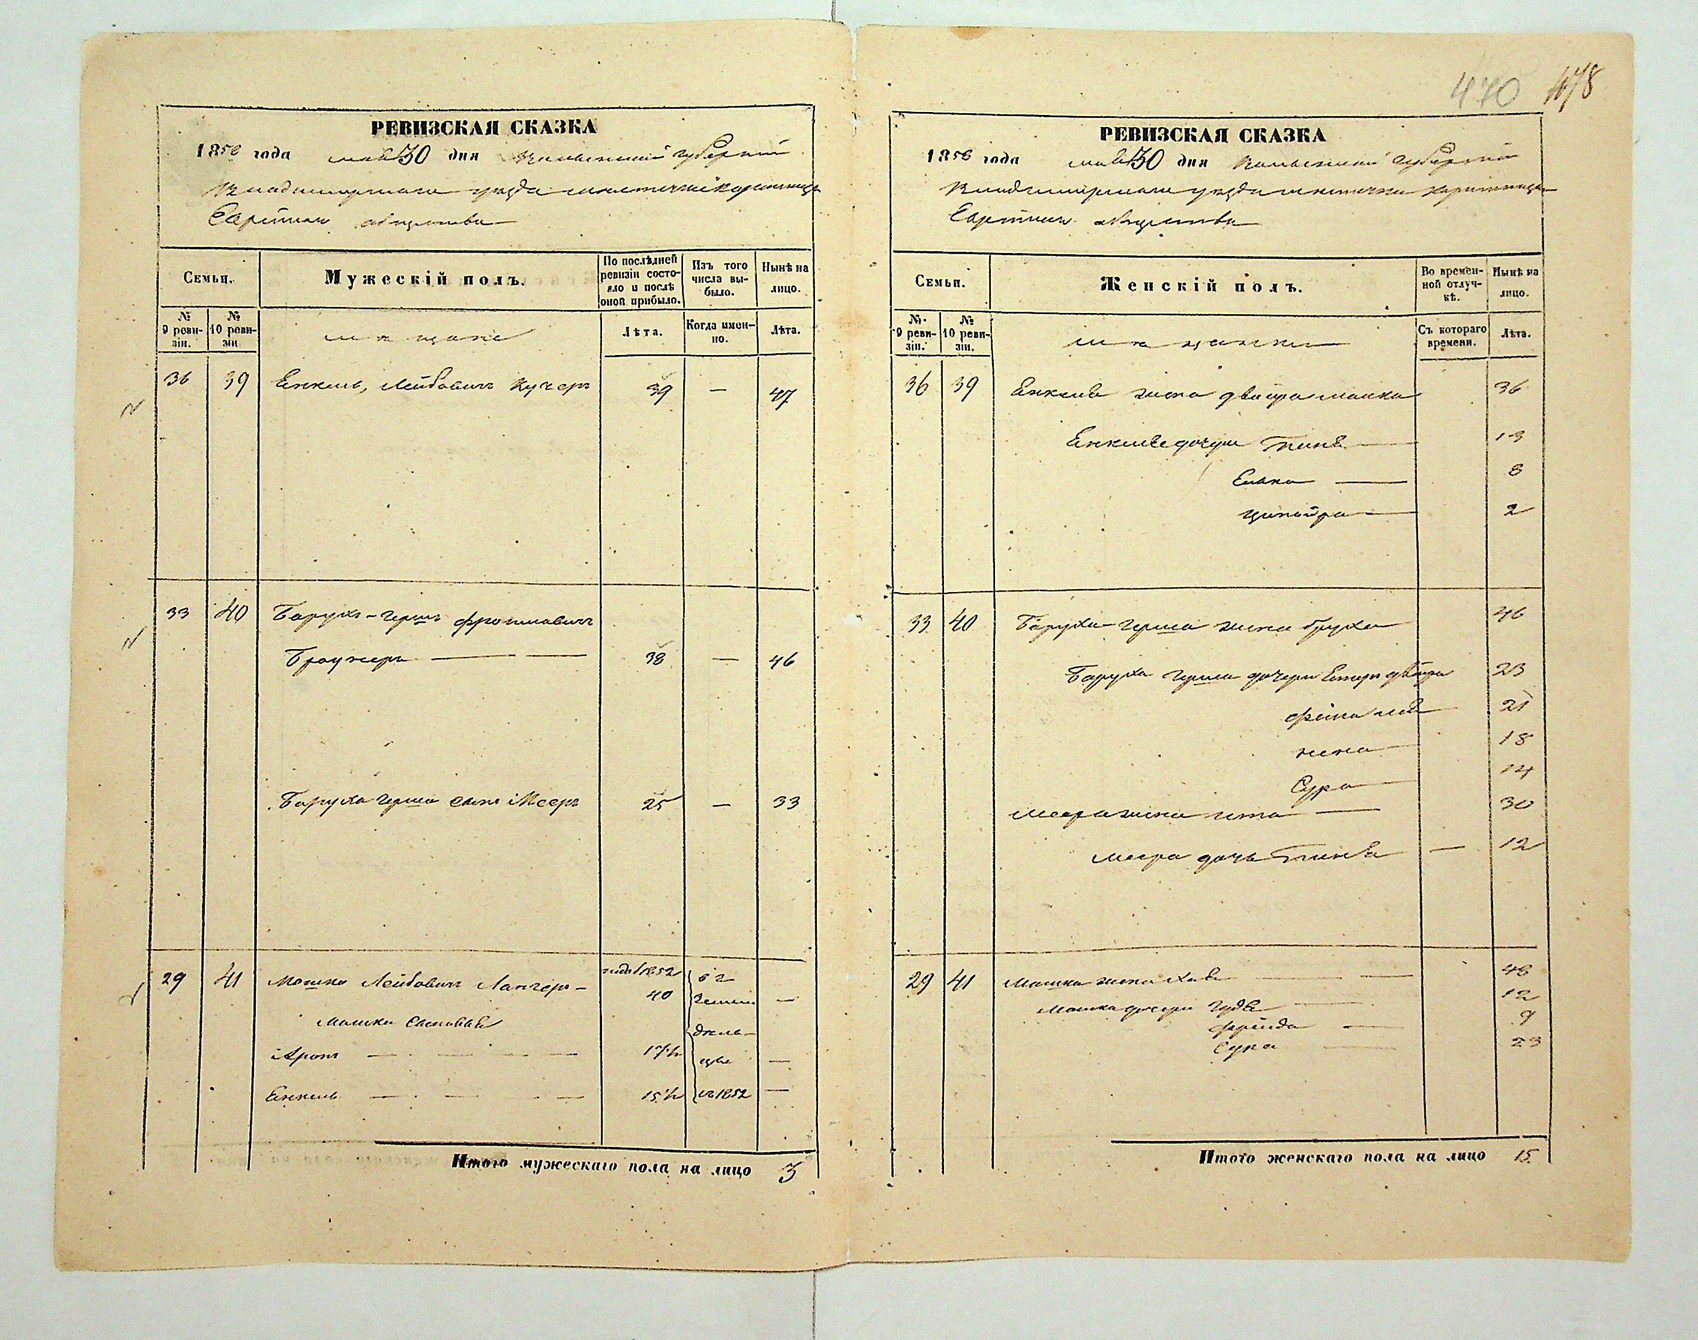 470 478
РЕВИЗСКАЯ СКАЗКА
1858 года мая 30 дня Волынской губернии
Владимирского уезда местечка
Еврейское общество
Семьи.
Мужескій полъ.
По послѣдней ревизіи состояло и послѣ оной прибыло.
Изъ того числа выбыло.
Нынѣ на лицо.
№ 9 ревизіи.
№ 10 ревизіи
мещане
Лѣта.
Когда именно.
Лѣта.
36 39 Енкель, Лейбовичъ Кучеръ 39 — 47
33 40 Барухъ-Гершъ Фроимовичъ
Браунеръ — — 38 — 46
Баруха Герша сынъ Мееръ 25 — 33
29 41 Мошко Лейбовичъ Лангеръ - 40 —
Мошка сыновья
Аронъ — — — 17½ —
Енкель — — — 15½ съ 1852 —
Итого мужескаго пола на лицо 3
РЕВИЗСКАЯ СКАЗКА
1858 года мая 30 дня Волынской губернии
Владимирского уезда местечка
Еврейское общество
Семьи.
Женскій полъ.
Во временной отлучкѣ.
Нынѣ на лицо.
№ 9 ревизіи.
№ 10 ревизіи.
мещанки
Съ котораго времени.
Лѣта.
36 39 Енкеля жена Двейра Малка 36
Енкеля дочери — 13
Елька — 8
Ципойра — 2
33 40 Баруха-Герша жена Бруха 46
Баруха Герша дочери Естеръ Двейра 23
21
18
Сура — 14
Меера жена Ита — 30
Меера дочь — 12
29 41 Мошка жена Хая — — 48
Мошка дочери — 12
Фрейда — 9
Сура — 23
Итого женскаго пола на лицо 15